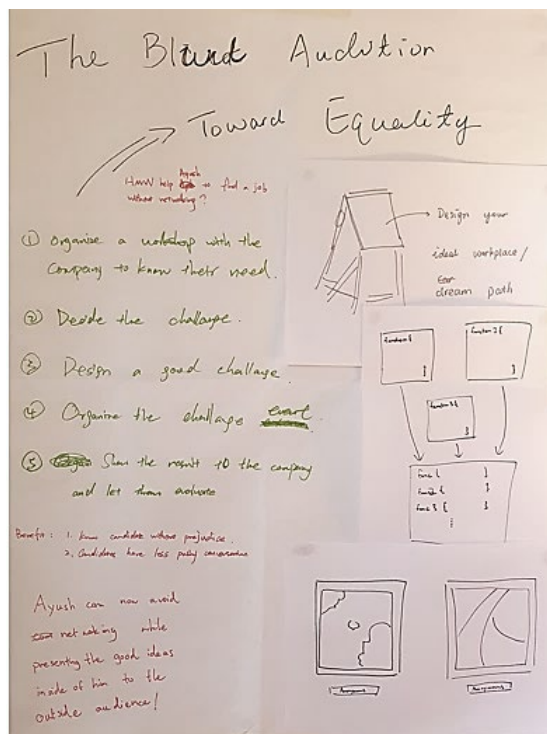 The Blind Audition
Toward Equality
HMW help Ayush to find a job
without networking?
① Organise a workshop with the
Company to know their need.
② Decide the challange.
③ Design a good challange.
④ Organise the challange event
⑤ Show the result to the company
and let them evaluate
Benefits: 1. Know candidate without prejudice.
2. Candidates have less
Ayush can now avoid
networking while
presenting the good ideas
inside of him to the
outside audience!
Design your
ideal workplace/
dream path
function 1 {
}
function 2 {
}
function 3 {
}
func 1 { }
func 2 { }
func 3 { }
⋮
Anonymous
Anonymous